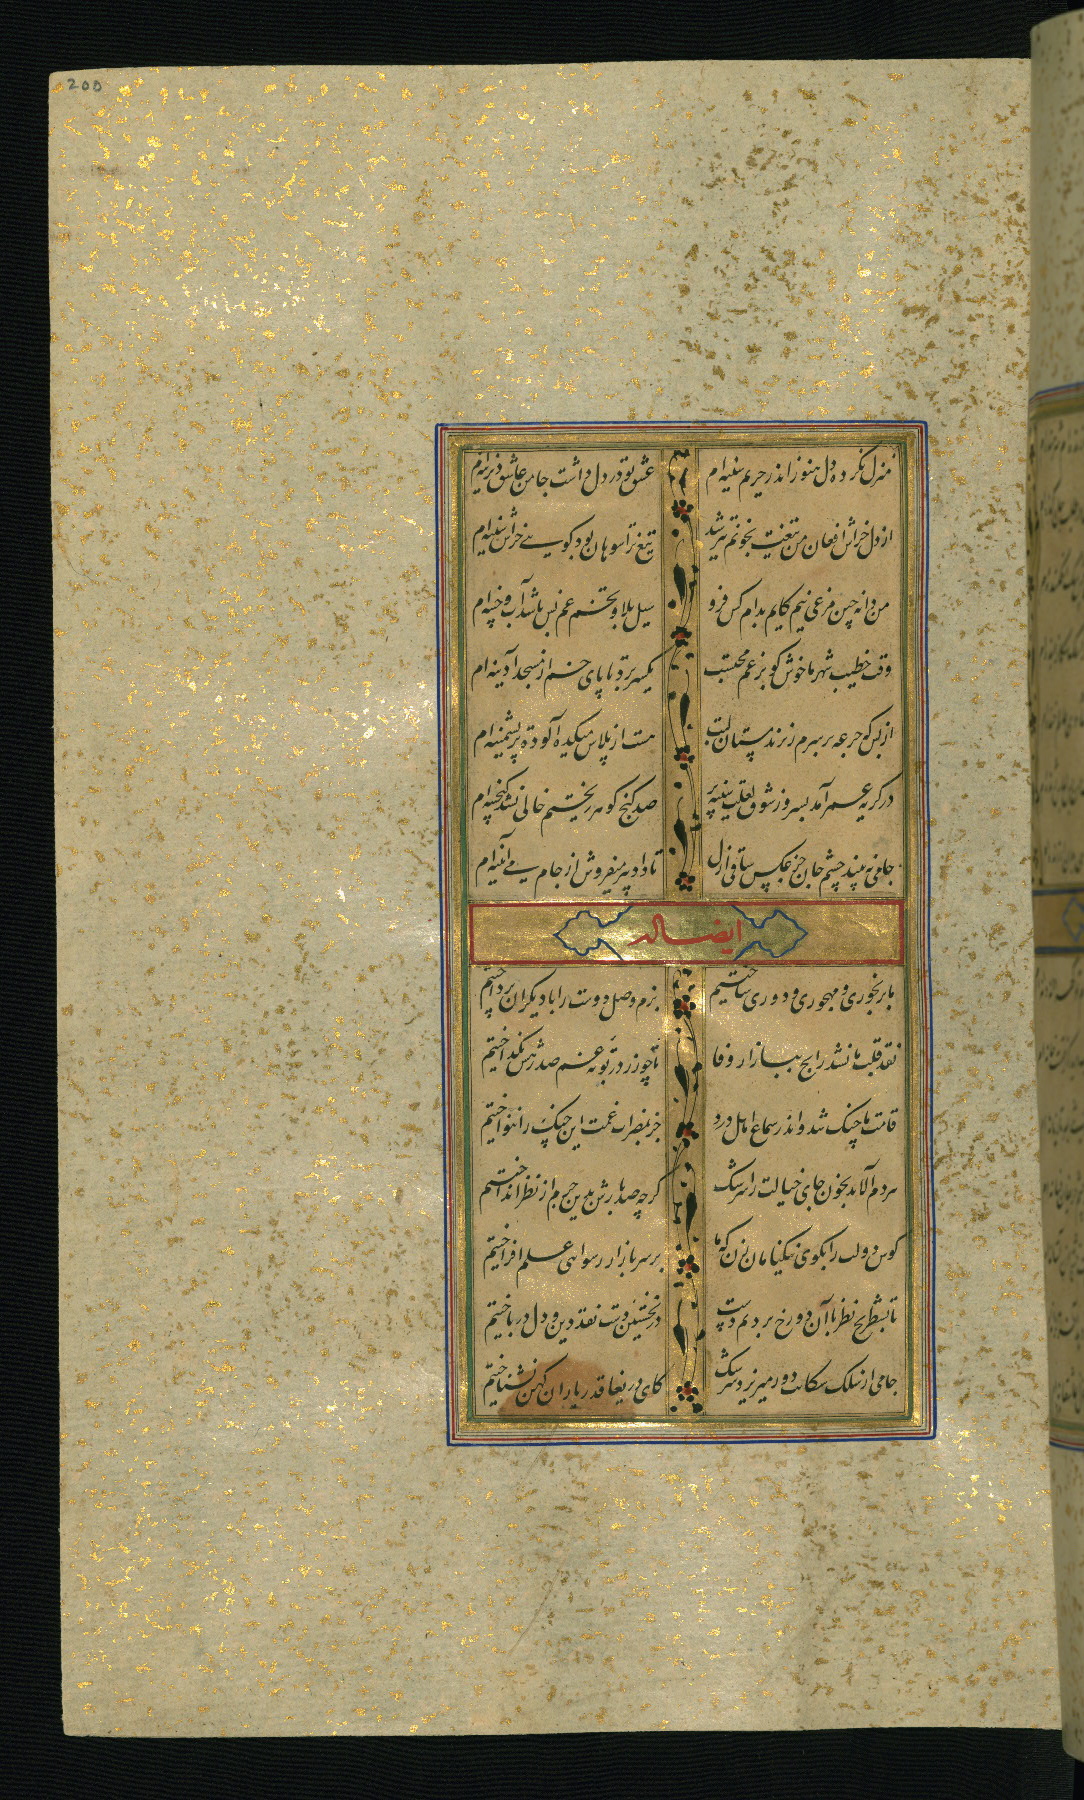 200
منزل نکرده دل هنوز اندر حریم سینه ام عشق تو در دل داشت جا من عاشق دیرینه ام
از دل خراش افغان من تیغت بخونم تیز شد تیغ ترا سوهان بود گویی خراش سینه ام
من دانه چین مرغی نیم کایم بدام کس فرو سیل بلا و تخم غم بس باشد آب و چینه ام
وقف خطیب شهر ما خوش کو بزعم محتسب یکسر برد تا پای خم از مسجد آدینه ام
از بس که جرعه بر سرم زیزند مستان لبت هست از پلاس میکده آلوده تر پشمینه ام
در گریه عمر آمد بسر وز شوق لعلت سینه پر صد گنج گوهر ریختم خالی نشد گنجینه ام
جامی نه بیند چشم جان جز عکس ساقی ازل تا داد پیر میفروش از جام می آیینه ام
ایضا له
ما برنجوری و مهجوری و دوری ساختیم بزم وصل دوست را با دیگران پرداختیم
نقد قلب ما نشد رایج ببازار وفا تا چو زر در بوته غم صد رهش نگداختیم
قامت ما چنگ شد واندر سماع اهل درد جز بمضراب غمت این چنگ را ننواختیم
مردم آلاید بخون جای خیالت را سرشک گرچه صد بارش بدین جرم از نظر انداختیم
کوس دولت را بکوی نیکنامان زن که ما بر سر بازار رسوایی علم افراختیم
تا بشطرنج نظر با آن دو رخ بردیم دست در نخستین دست نقد دین و دل درباختیم
جامی از سلک سگانت دور میریزد سرشک کای دریغا قدر یاران کهن نشناختیم